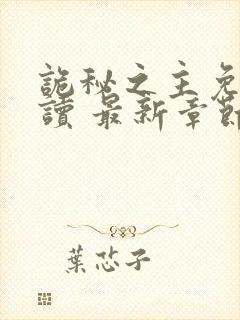 詭秘之主免
讀 最新章節
葉芯子